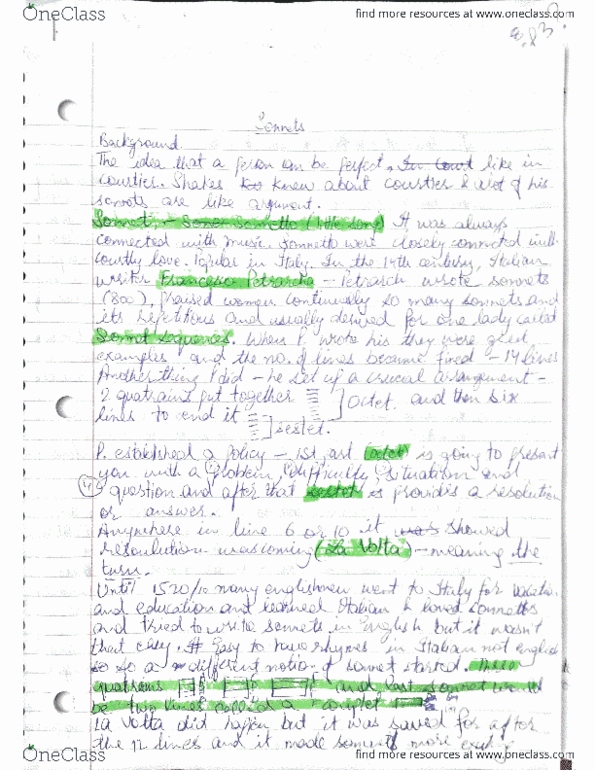 OneClass
find more resources at www.oneclass.com
Sonnets
Background.
The idea that a person can be perfect. In Court like in
courties. Shakes knew about courties & lot of his
sonnets are like argument.
Sonnet:- Sonetto (little song) It was always
connected with music. Sonnetto were closely connected with
courtly love. in Italy. In the 14th century, Italian
writer Francesco Petrarcha - Petrarch wrote sonnets
(300), praised women continuously so many sonnets and
its repetitions and usually desired for one lady called
Sonnet sequences. When P. wrote his they were good
examples and the no. of lines became fixed - 14 lines
Another thing P did - he set up a crucial arrangement -
2 quatrains put together ] Octet. and then six
lines to end it ] sestet.
P. established a policy - 1st art octet is going to present
you with a problem, difficulty, situation and
question and after that sestet is provides a resolution
or answer.
Anywhere in line 6 or 10 it was showed
resoulution was coming (La Volta) - meaning the
turn.
Until 1520/ many englishmen went to Italy for
and education and learned Italian & loved sonnetts
and tried to write sonnets in English but it wasn't
that easy. Easy to have rhymes in Italian not english
so so a different notion of sonnet started. Three
quatrains and last sonnet would
be two lines called a couplet
La Volta did happen but it was saved for after
the 12 lines and it made sonnets more
OneClass
find more resources at www.oneclass.com